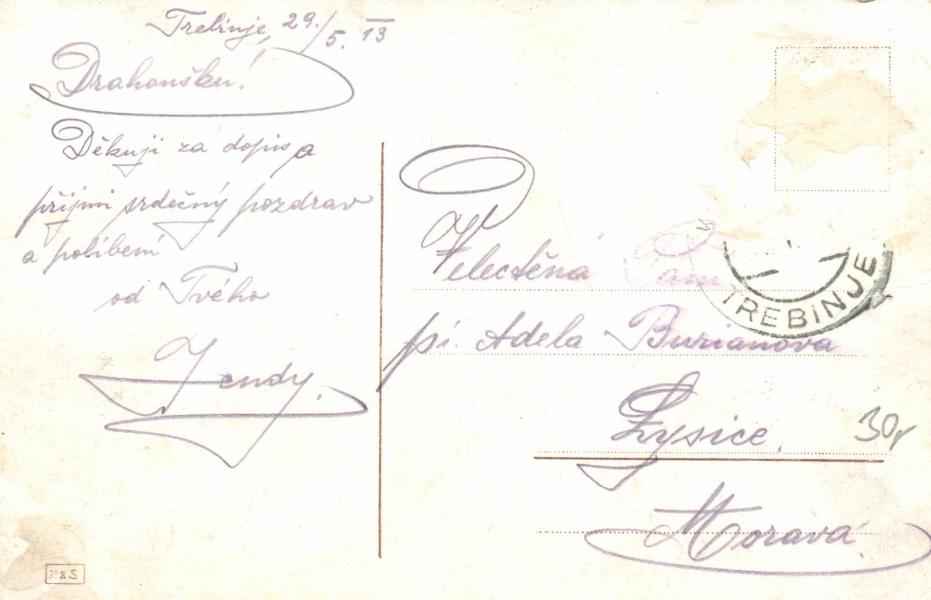 Trebinje, 29./5. 13
Drahoušku!
Děkuji za dopis a
přijmi srdečný pozdrav
a políbení
od Tvého
Jendy.
Velectěná Paní
pí. Adela Burianova
Lysice.
Morava
TREBINJE
30,-
H & S